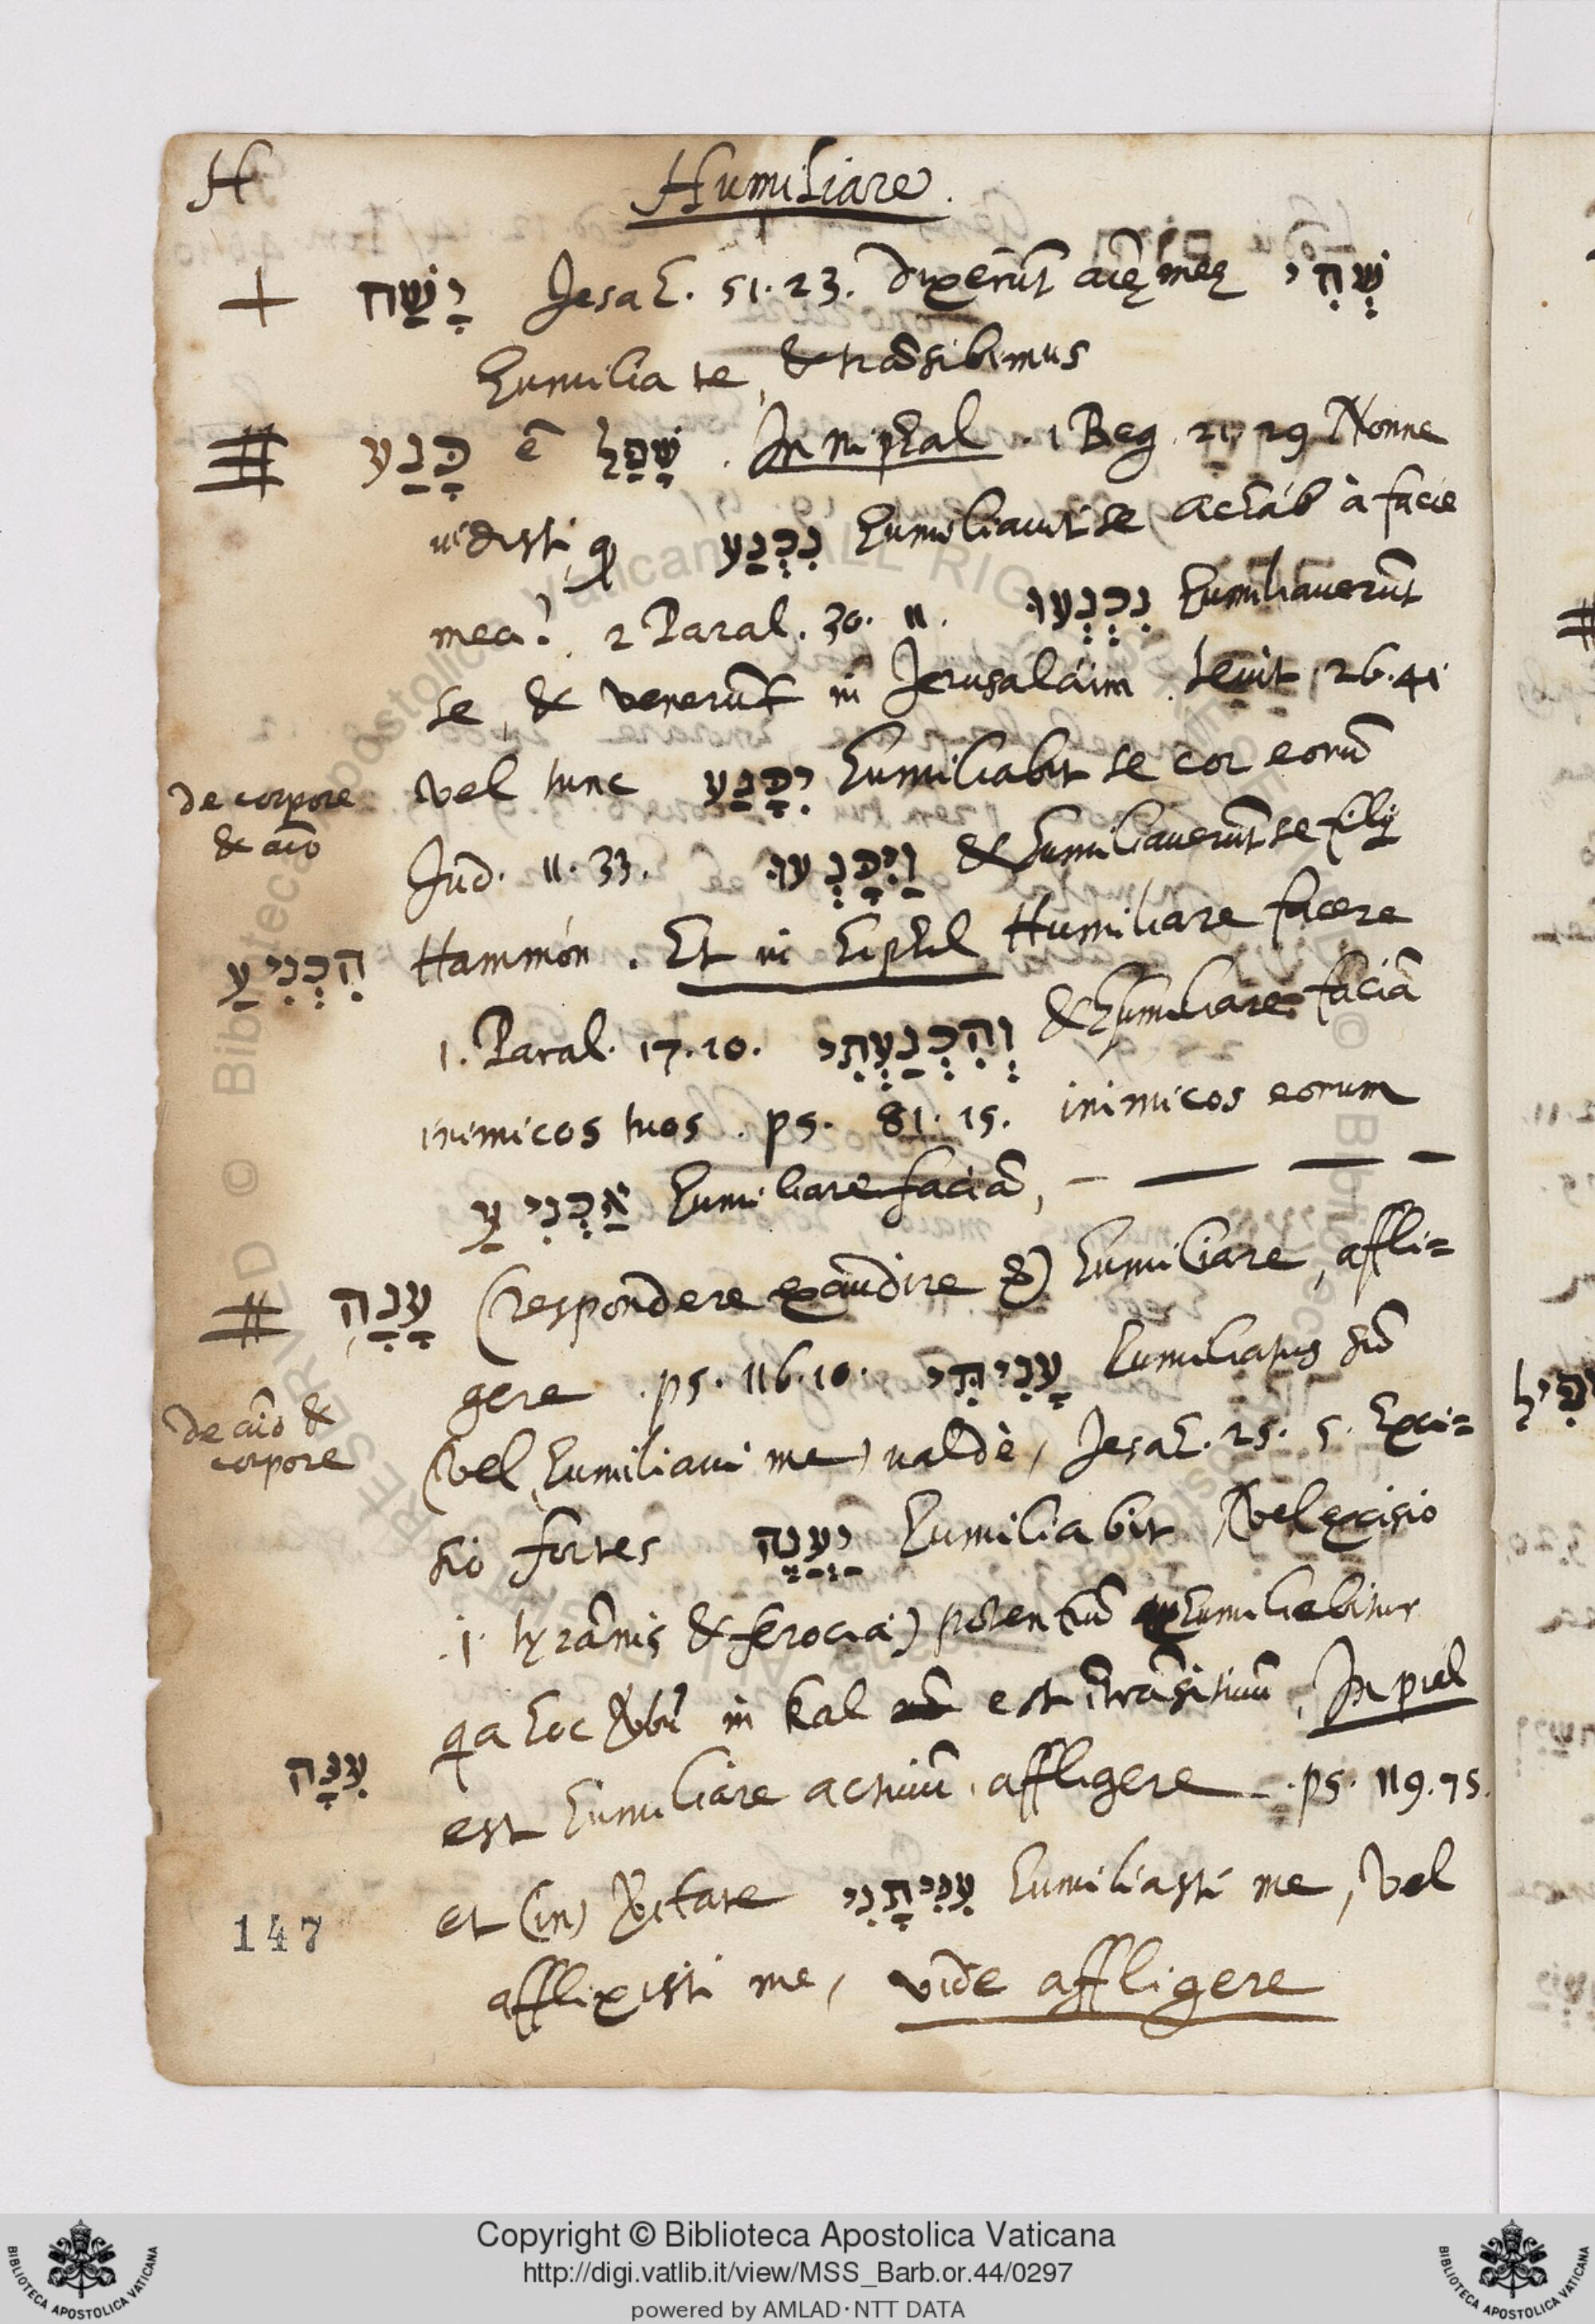 H
Humiliare.
יָשַׁח Jesah. 51. 23. dixerūt aīę meę שְׁחִי
humilia te, & trāsibimus
כָּנַע ē שָׁפַל. In niphal. 1 Reg. 21. 29 Nonne
vidisti q נִכְנַע humiliavit se achab à facie
mea? 2 Paral. 30. 11. נִכְנְעוּ humiliaverūt
se, & venerūt in Jerusalaim. Levit. 26. 41
de corpore
& aīo
vel tunc יִכָּנַע humiliabit se cor eorū
Jud. 11. 33. וַיִּכָּנְעוּ & humiliaverūt se filij
הִכְנִיעַ Hammón. Et in hiphil Humiliare facere
1. Paral. 17. 10. וְהִכְנַעְתִּי & humiliare faciā
inimicos tuos. ps. 81. 15. inimicos eorum
אַכְנִיעַ humiliare faciā,
עָנָה (respondere exaudire &) humiliare, affli=
gere. ps. 116. 10. עָנִיתִי humiliatus sū
de aīo &
corpore
(vel humiliavi me) valdè, Jesah. 25. 5. Exci=
sio fortes יַעֲנֶה humiliabit (vel excisio
.i. tyrānis & ferocia) potentiū humiliabitur
qa hoc vbū in kal est ītrāsitivū, In piel
עִנָּה
est humiliare activū, affligere. ps. 119. 75.
et (in) vitate עִנִּיתָנִי humiliasti me, vel
afflixisti me, vide affligere
147
Copyright © Biblioteca Apostolica Vaticana
http://digi.vatlib.it/view/MSS_Barb.or.44/0297
powered by AMLAD·NTT DATA